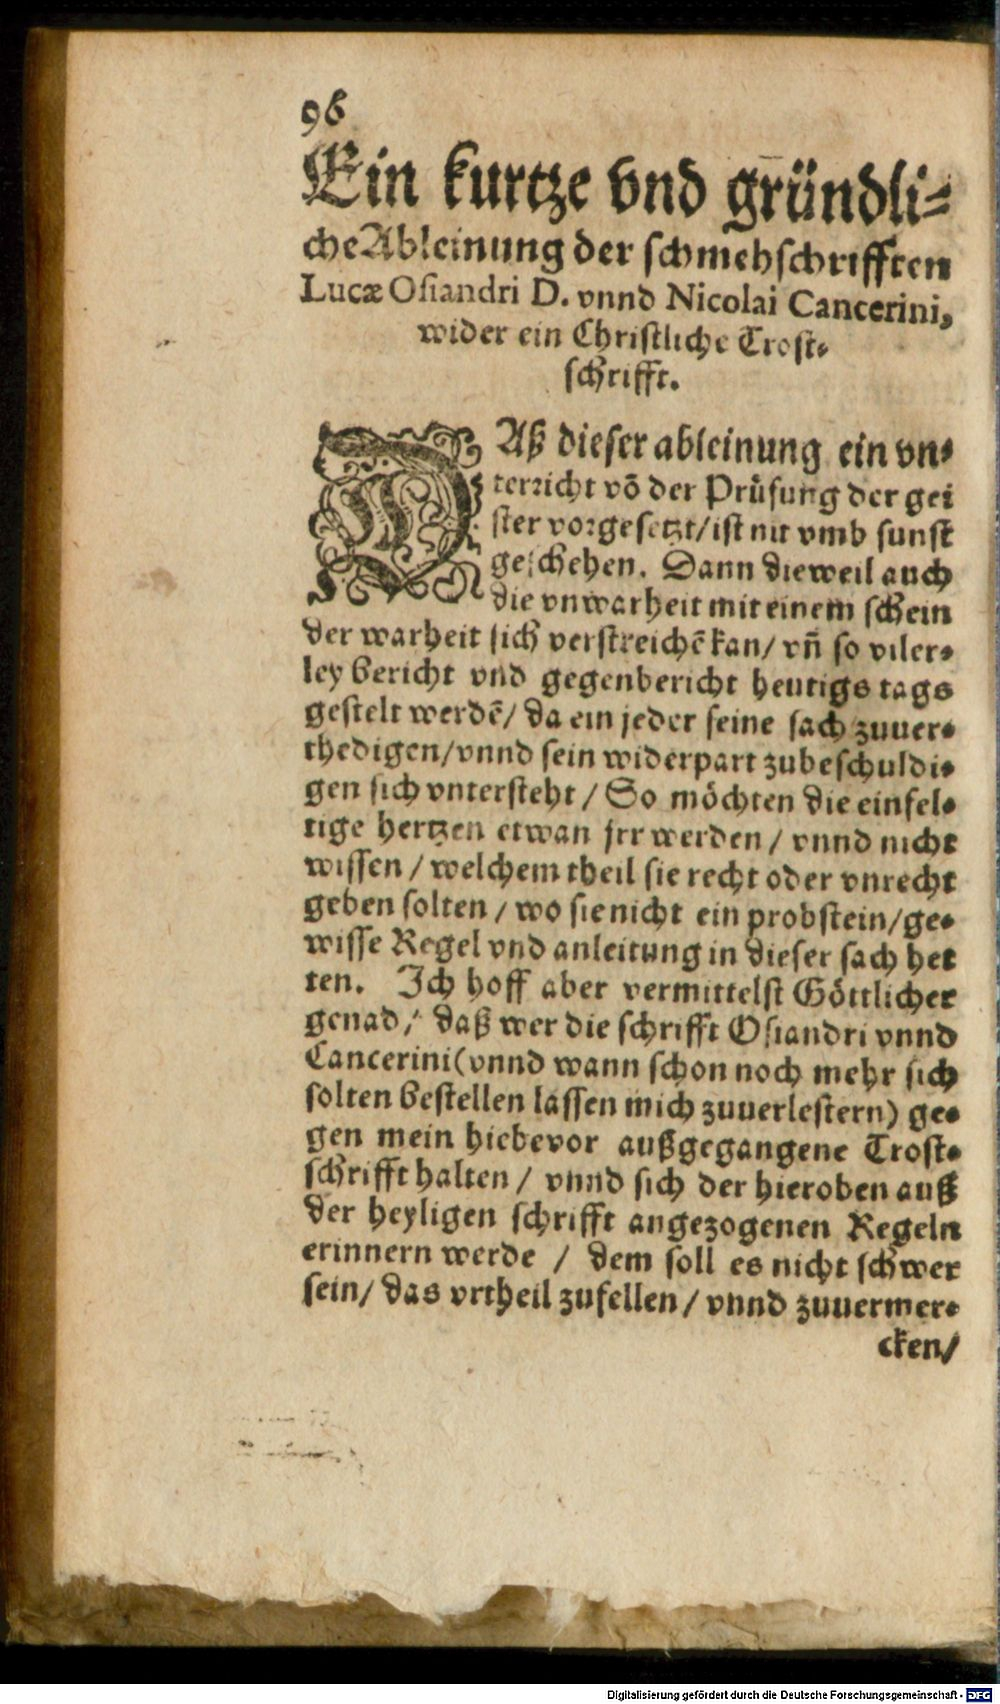 96
Ein kurtze vnd gründli⸗
che Ableinung der schmehschrifften
Lucæ Osiandri D. vnnd Nicolai Cancerini,
wider ein Christliche Trost⸗
schrifft.
DAß dieser ableinung ein vn⸗
terricht võ der Prüfung der gei
ster vorgesetzt/ ist nit vmb sunst
geschehen. Dann dieweil auch
die vnwarheit mit einem schein
der warheit sich verstreichẽ kan/ vñ so viler⸗
ley bericht vnd gegenbericht heutigs tags
gestelt werdẽ/ da ein jeder seine sach zuuer⸗
thedigen/ vnnd sein widerpart zubeschuldi⸗
gen sich vntersteht / So möchten die einfel⸗
tige hertzen etwan jrr werden / vnnd nicht
wissen / welchem theil sie recht oder vnrecht
geben solten / wo sie nicht ein probstein/ ge⸗
wisse Regel vnd anleitung in dieser sach het
ten. Ich hoff aber vermittelst Göttlicher
genad / daß wer die schrifft Osiandri vnnd
Cancerini (vnnd wann schon noch mehr sich
solten bestellen lassen mich zuuerlestern) ge⸗
gen mein hiebevor außgegangene Trost⸗
schrifft halten / vnnd sich der hieroben auß
der heyligen schrifft angezogenen Regeln
erinnern werde / dem soll es nicht schwer
sein/ das vrtheil zufellen / vnnd zuuermer⸗
cken/
Digitalisierung gefördert durch die Deutsche Forschungsgemeinschaft - DFG